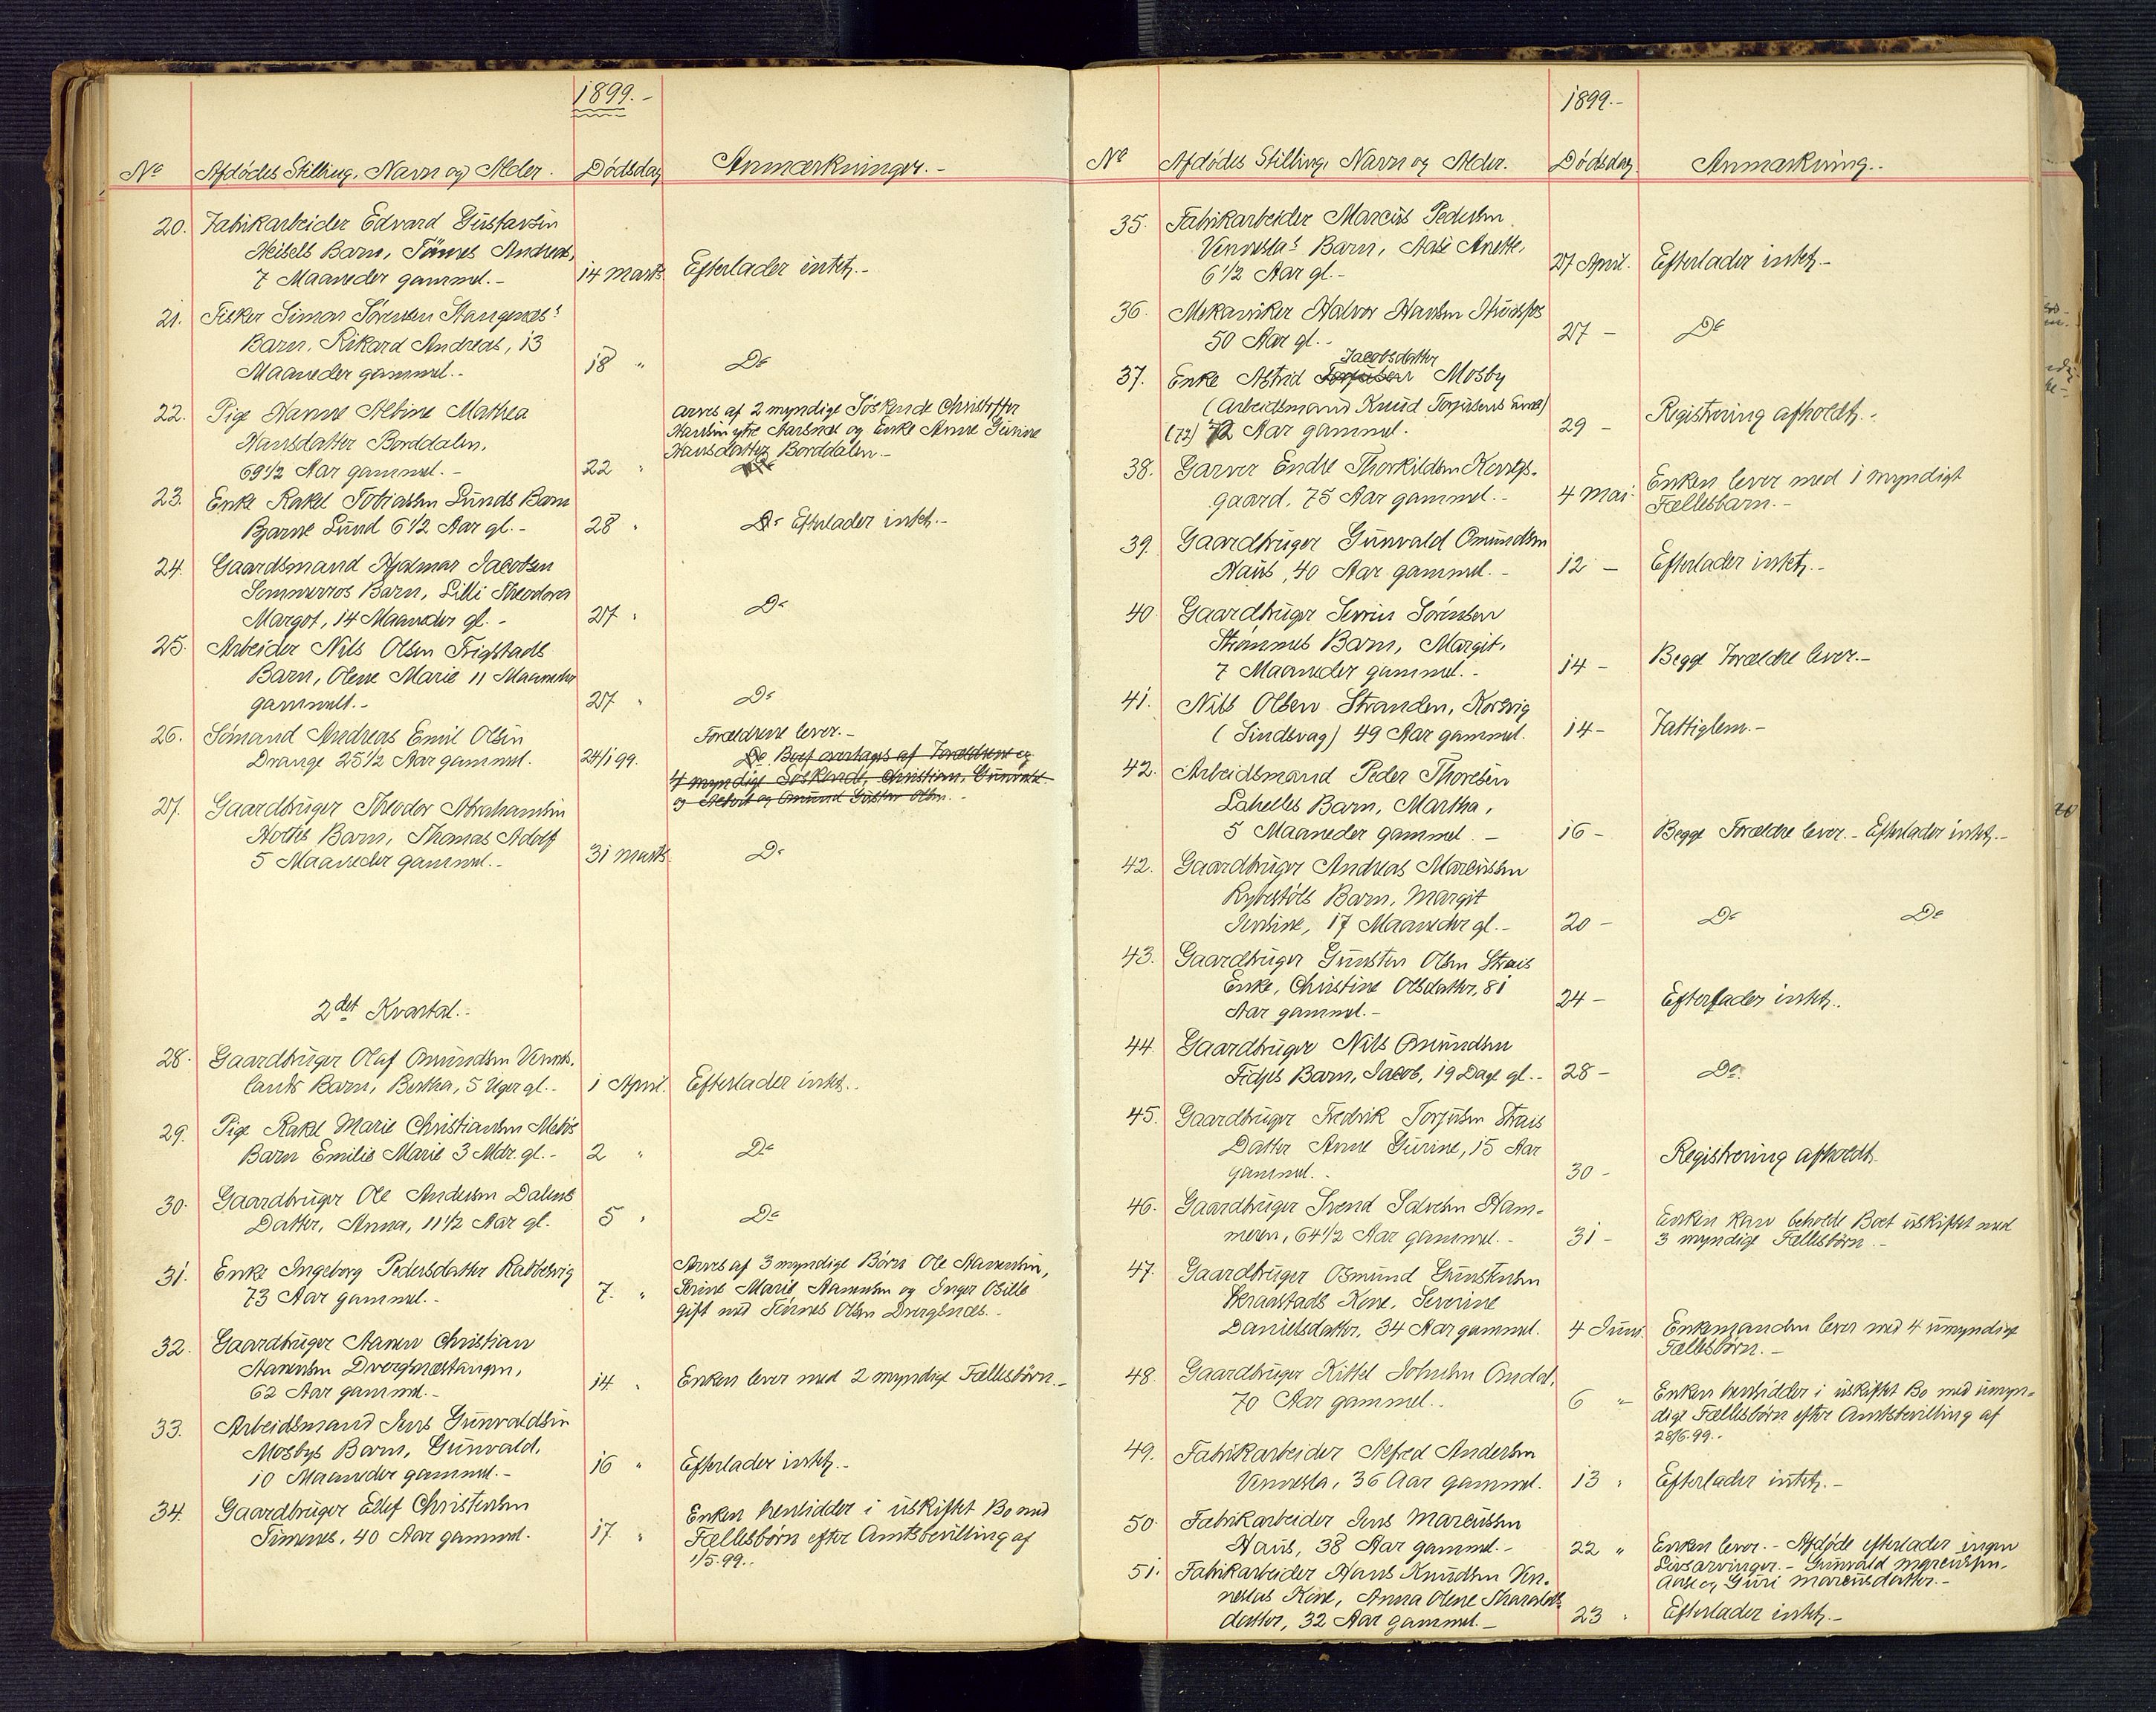 1899.-
No Afdödes Stilling, Navn og Alder. Dödsdag Anmærkninger.-
20. Fabrikarbeider Edvard Gustavsen
Heisels Barn, Tönnes Andreas,
7 Maaneder gammel.- 14 Marts Efterlader intet.-
21. Fisker Simon Sörensen Stangenes's
Barn, Rikard Andreas, 13
Maaneder gammel.- 18 " Do
22. Pige Hanne Albine Mathea
Hansdatter Borddalen,
69 1/2 Aar gammel.- 22 "
Arves af 2 myndige Söskende Christoffer
Hansen ytre Aarsnes og Enke Anne Gurine
Hansdatter Borddalen.-
23. Enke Rakel Tobiassen Lunds Barn
Bjarne Lund 6 1/2 Aar gl.- 28 " Efterlader intet.-
24. Gaardsmand Hjalmar Jacobsen
Sommerros Barn, Lilli Theodora
Margot, 14 Maaneder gl.- 27 " Do
25. Arbeider Nils Olsen Frigstads
Barn, Olene Marie 11 Maaneder
gammelt.- 27 " Do
26. Sömand Andreas Emil Olsen
Drange 25 1/2 Aar gammel. 24/1 99.
Forældrene lever.-
Do Boet overtages af Forældrene og
4 myndige Söskende, Christian, Gunvald
og Alfred og Omund Gusten Olsen.-
27. Gaardbruger Theodor Abrahamsen
Holtes Barn, Thomas Adolf
5 Maaneder gammel.- 31 Marts Do
2det Kvartal.-
28. Gaardbruger Olaf Omundsen Vennes-
lands Barn, Bertha, 5 Uger gl.- 1 April. Efterlader intet.-
29. Pige Rakel Marie Christiansen Mebös
Barn Emilie Marie 3 Mdr. gl.- 2 " Do
30. Gaardbruger Ole Andersen Dalens
Datter, Anna, 11 1/2 Aar gl. 5 " Do
31. Enke Ingeborg Pedersdatter Rabbesvig
73 Aar gammel.- 7. "
Arves af 3 myndige Börn Ole Aanensen,
Serine Marie Aanensen og Inger Osille
gift med Tönnes Olsen Dvergsnes.-
32. Gaardbruger Aanen Christian
Aanensen Dvergsnestangen,
62 Aar gammel.- 14 " Enken lever med 2 myndige Fællesbörn.-
33. Arbeidsmand Jens Gunvaldsen
Mosbys Barn, Gunvald,
10 Maaneder gammel.- 16 " Efterlader intet.-
34. Gaardbruger Ellef Christensen
Timenes, 40 Aar gammel. 17. "
Enken hensidder i uskiftet Bo med
Fællesbörn efter Amtsbevilling af
1/5.99..
1899.-
No Afdödes Stilling, Navn og Alder. Dödsdag. Anmærkning..
35. Fabrikarbeider Marcus Pedersen
Vennesla's Barn, Aase Anette,
6 1/2 Aar gl.- 27 April. Efterlader intet.-
36. Mekaniker Halvor Hansen Hunsfos
50 Aar gl.- 27 - Do
Jacobsdatter
37. Enke Astrid Torjusen Mosby
(Arbeidsmand Knud Torjusens Enke)
(72) 72 Aar gammel. 29 - Registrering afholdt.-
38. Garver Endre Thorkildsen Kongs-
gaard, 75 Aar gammel.- 4 Mai.
Enken lever med 1 myndigt
Fællesbarn.-
39. Gaardbruger Gunvald Omundsen
Haus, 40 Aar gammel.- 12 - Efterlader intet.-
40 Gaardbruger Severin Sörensen
Strömmes Barn, Margit,
7 Maaneder gammel.- 14 - Begge Forældre lever.-
41. Nils Olsen Stranden, Korsvig
(Sindsvag) 49 Aar gammel. 14 - Fattiglem.-
42. Arbeidsmand Peder Thoresen
Lahelles Barn, Martha,
5 Maaneder gammel.- 16 - Begge Forældre lever.- Efterlader intet.-
42. Gaardbruger Andreas Marcussen
Rybestöls Barn, Margit
17 Maaneder gl.- 20 - Do Do
43. Gaardbruger Gunsten Olsen Strais
Enke, Christine Olsdatter, 81
Aar gammel.- 24 - Efterlader intet.
44. Gaardbruger Nils Omundsen
Fidjes Barn, Jacob, 19 Dage gl.- 28 - Do
45. Gaardbruger Fredrik Torjusen Strais
Datter Anne Gurine, 15 Aar
gammel.- 30 - Registrering afholdt.
46. Gaardbruger Svend Salvesen Ham-
meren, 64 1/2 Aar gammel.- 31 -
Enken kan beholde Boet uskiftet med
3 myndige Fællesbörn.-
47. Gaardbruger Osmund Gunstensen
Skraastads Kone, Severine
Danielsdatter, 34 Aar gammel. 4 Juni.
Enkemanden lever med 4 umyndige
Fællesbörn.-
48. Gaardbruger Kittel Johnsen Omdal,
70 Aar gammel.- 6 "
Enken hensidder i uskiftet Bo med umyn-
dige Fællesbörn efter Amtsbevilling af
28/6.99.-
49. Fabrikarbeider Alfred Andersen
Vennesla, 36 Aar gammel. 13 " Efterlader intet.-
50. Fabrikarbeider Jens Marcussen
Haus, 38 Aar gammel.- 22 "
Enken lever.- Afdöde efterlader ingen
Livsarvinger.- Gunvald Marcussen,
Aase og Guri Marcusdatter.-
51. Fabrikarbeider Hans Knudsen Ven-
neslas Kone, Anna Olene Tharalds-
datter, 32 Aar gammel.- 23 " Efterlader intet.-